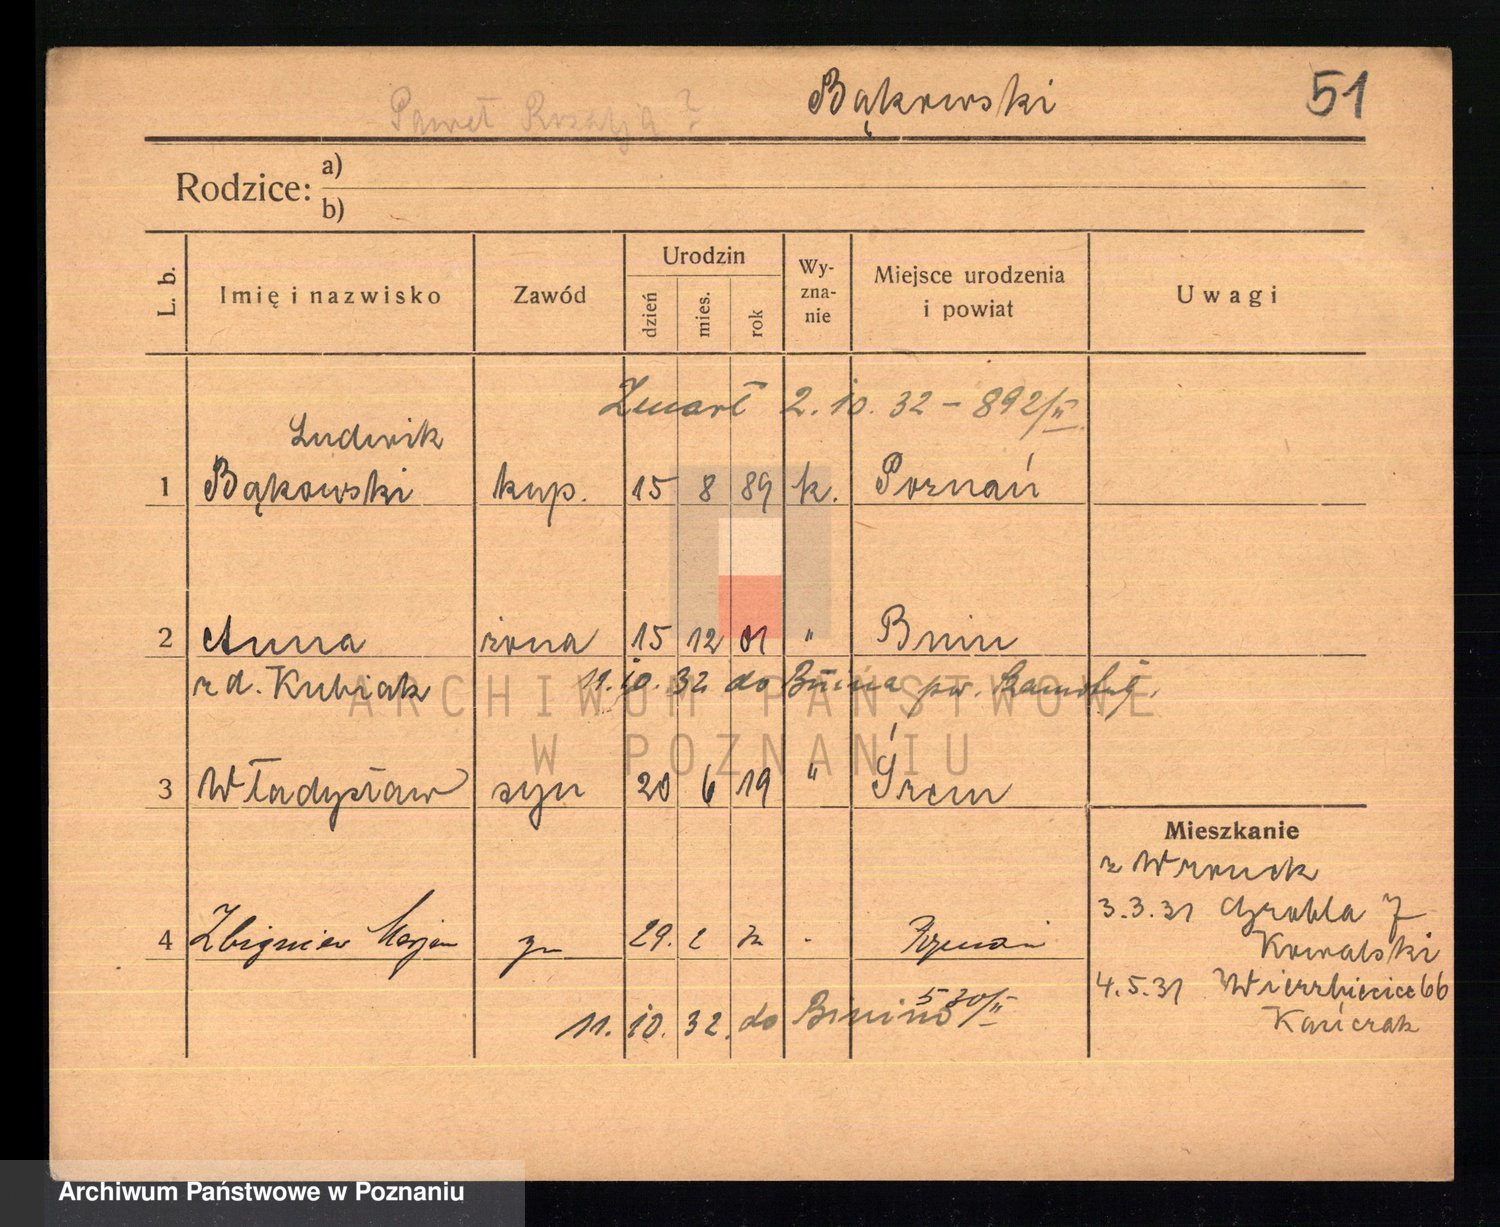 Paweł Rozalja ?
Bąkowski
51
Rodzice: a)
b)
L. b.
Imię i nazwisko
Zawód
Urodzin
dzień
mies.
rok
Wy-
zna-
nie
Miejsce urodzenia
i powiat
Uwagi
Zmarł 2.10.32 – 892/II
Ludwik
1 Bąkowski kup. 15 8 89 k. Poznań
2 Anna żona 15 12 01 " Bnin
z d. Kubiak 11.10.32 do Bnina pow.
3 Władysław syn 20 6 19 " Śrem
4 Zbigniew Marjan 29. 2 Poznań
530/II
11. 10. 32. do Bnina
Mieszkanie
z Wronek
3.3.31 Grobla 7
Kowalski
4.5.31 Wierzbięcice 66
Kańczak
ARCHIWUM PAŃSTWOWE
W POZNANIU
Archiwum Państwowe w Poznaniu